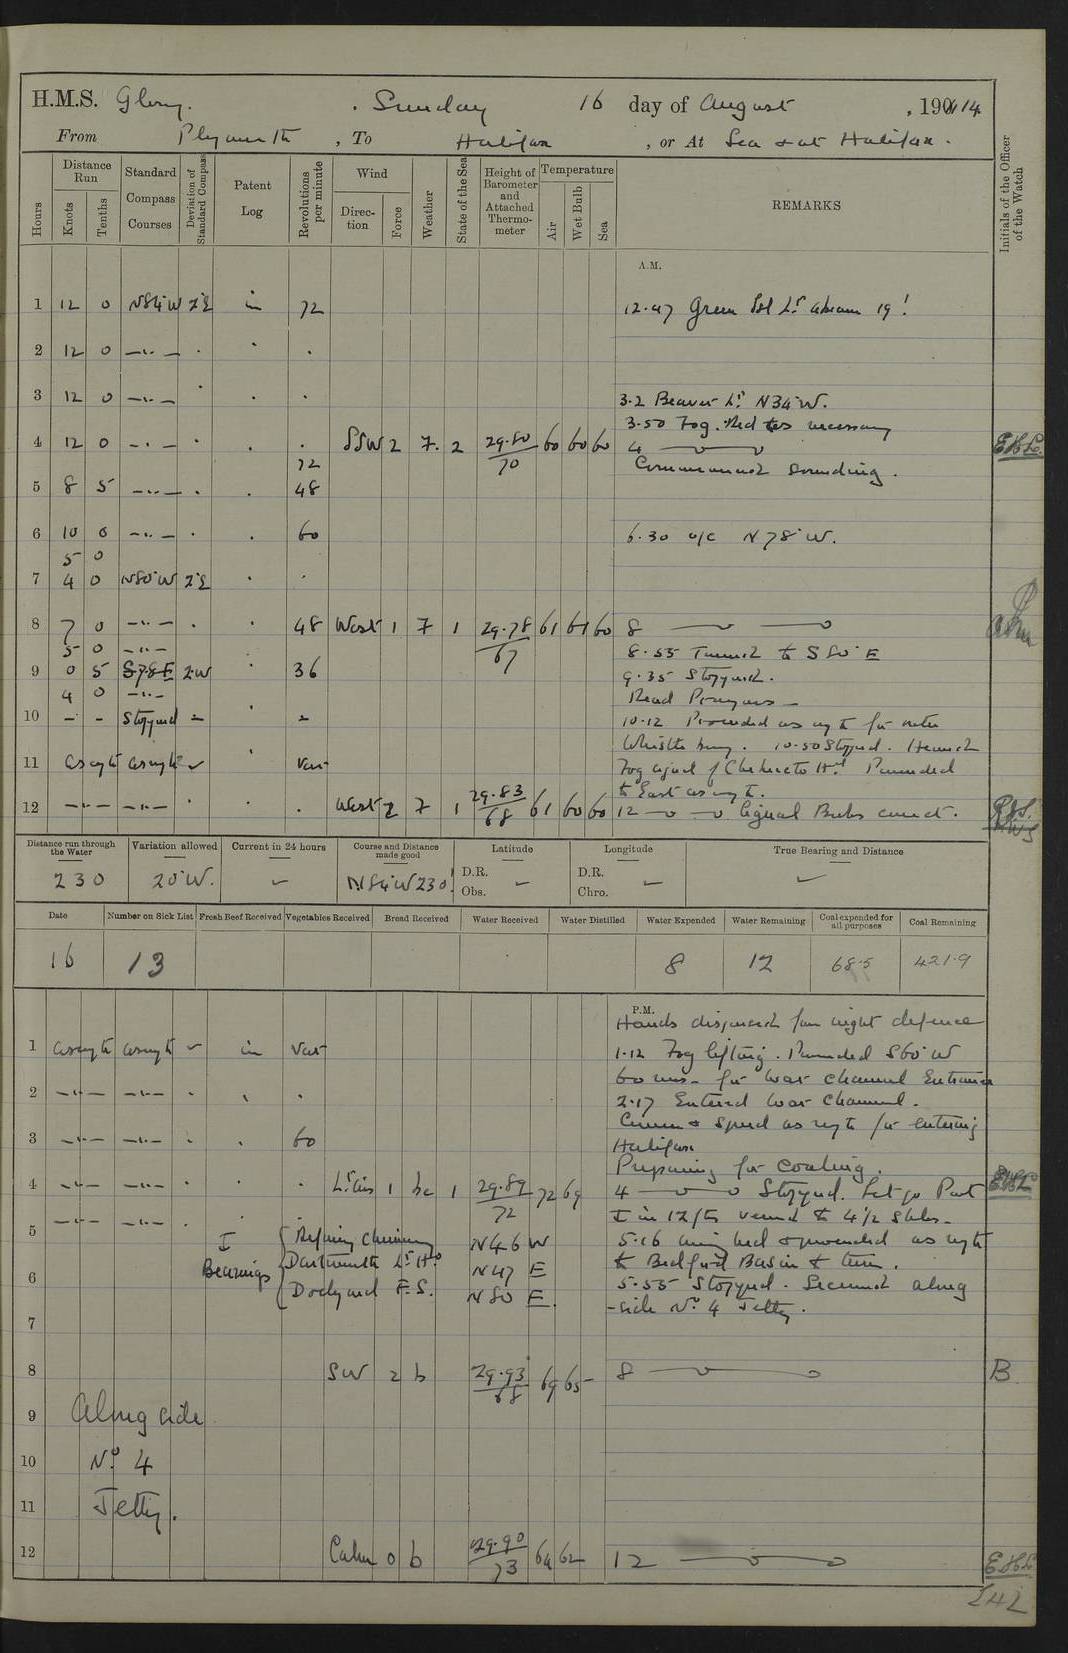 H.M.S. Glory. Sunday 16 day of August, 1914
From Plymouth, To Halifax, or At Sea & at Halifax.
Hours
Distance Run
Knots
Tenths
Standard Compass Courses
Deviation of Standard Compass
Patent Log
Revolutions per minute
Wind
Direction
Force
Weather
State of the Sea
Height of Barometer and Attached Thermometer
Temperature
Air
Wet Bulb
Sea
REMARKS
Initials of the Officer of the Watch
A.M.
1 12 0 N84°W 2°E in 72 12.47 Green Isl Lt abeam 19'
2 12 0 —..— . . .
3 12 0 —..— . . . 3.2 Beaver Lt N34°W.
3.50 Fog. Red as necessary
4 12 0 —..— . . . SSW 2 7. 2 29.80 60 60 60 4
72 70 Commenced sounding.
5 8 5 —..— . . 48
6 10 0 —..— . . 60 6.30 a/c N78°W.
5 0
7 4 0 N80°W 2°E . .
8 7 0 —..— . . 48 West 1 7 1 29.78 61 61 60 8
5 0 —..— 67 8.55 Turned to S80°E
9 0 5 S78E 2°W . 36 9.35 Stopped.
4 0 —..— Read Prayers
10 - - Stopped - . - 10.12 Proceeded as reqte for outer
Whistle buoy. 10.50 Stopped. Heard
11 as reqte as reqte . var Fog signal of Chebucto Hd. Proceeded
to East as reqte.
12 —..— —..— . . . West 2 7 1 29.83 61 60 60 12 Signal Books correct.
68
Distance run through the Water
Variation allowed
Current in 24 hours
Course and Distance made good
Latitude
Longitude
True Bearing and Distance
230 20°W. N84°W 230'
D.R.
Obs.
D.R.
Chro.
Date
Number on Sick List
Fresh Beef Received
Vegetables Received
Bread Received
Water Received
Water Distilled
Water Expended
Water Remaining
Coal expended for all purposes
Coal Remaining
16 13 8 12 68.5 421.9
P.M.
Hands dispersed from night defence
1 as reqte as reqte in var 1.12 Fog lifting. Proceeded S60°W
60 revs. for War Channel Entrance
2 —..— —..— . . . 2.17 Entered War Channel.
Course & Speed as reqte for entering
3 —..— —..— . . 60 Halifax
Preparing for coaling.
4 —..— —..— . . . Lt airs 1 bc 1 29.89 72 69 4 Stopped. Let go Port
72
—..— —..— . . . I in 12 fms veered to 4½ Shks.
5 I Bearings Refinery Chimney N46W 5.16 weighed & proceeded as reqte
Dartmouth Lt Ho N47E to Bedford Basin & turn.
6 Dockyard F.S. N80E. 5.55 Stopped. Secured along
-side No. 4 Jetty.
7
8 SW 2 b 29.93 69 65 8 B
68
9 Alongside
10 No. 4
11 Jetty.
12 Calm 0 b 29.90 64 62 12
73
242